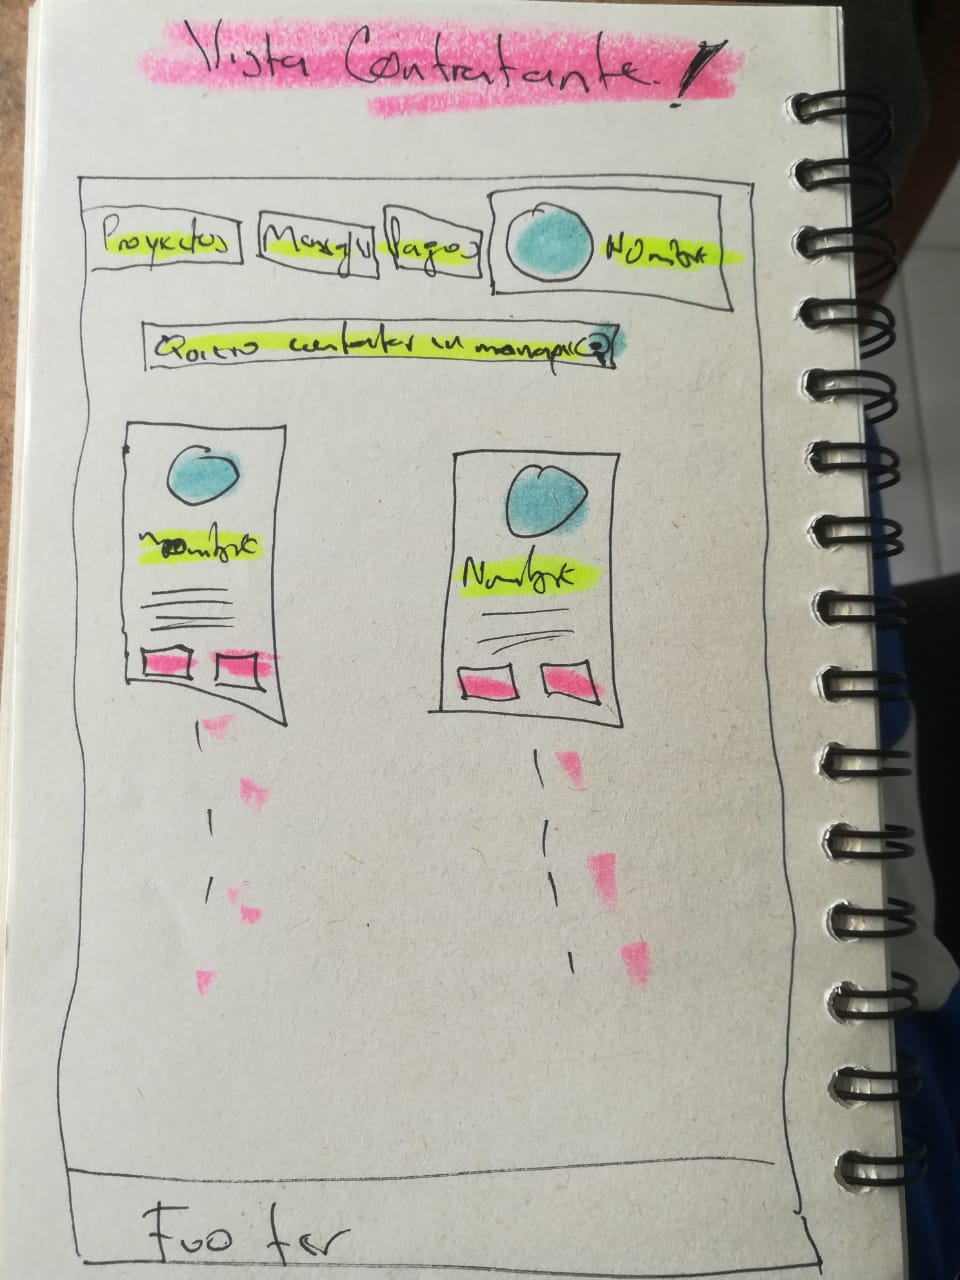 Vista Contratante!
Proyectos Pagos Nombre
Quiero contratar un
Nombre
Nombre
Footer